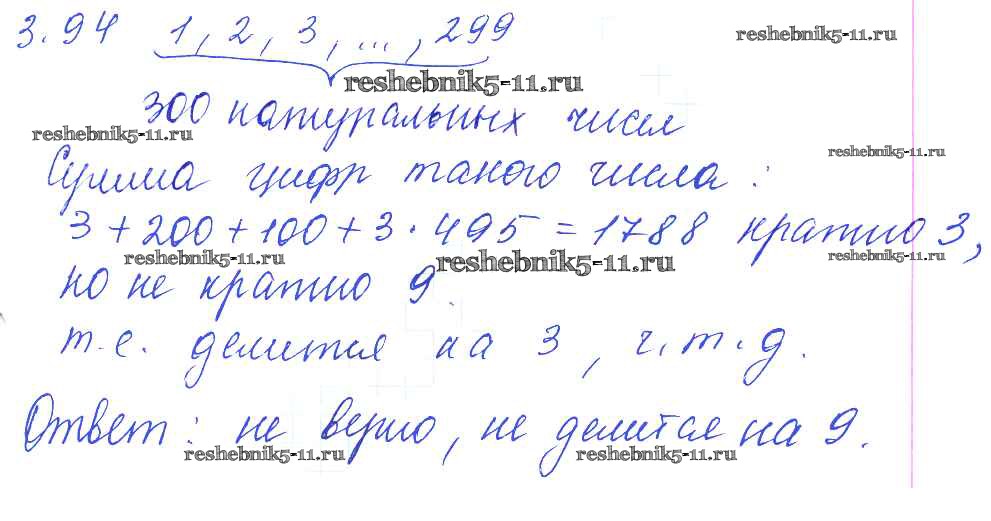 3.94 1, 2, 3, ..., 299
reshebnik5-11.ru
reshebnik5-11.ru
300 натуральных чисел
reshebnik5-11.ru
reshebnik5-11.ru
Сумма цифр такого числа:
3 + 200 + 100 + 3 · 495 = 1788 кратно 3,
reshebnik5-11.ru
reshebnik5-11.ru
reshebnik5-11.ru
но не кратно 9.
т.е. делится на 3, ч.т.д.
Ответ: не верно, не делится на 9.
reshebnik5-11.ru
reshebnik5-11.ru